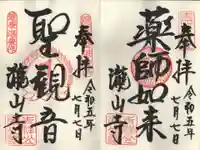 奉拝
令和五年
七月七日
薬師如来
瀧山寺
奉拝
令和五年
七月七日
聖観音
瀧山寺